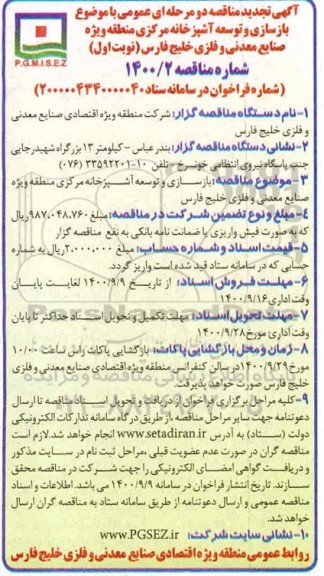 آگهی تجدید مناقصه دو مرحله ای عمومی با موضوع
بازسازی و توسعه آشپزخانه مرکزی منطقه ویژه
صنایع معدنی و فلزی خلیج فارس (نوبت اول)
P.G.M.I.S.E.Z
شماره مناقصه ۱۴۰۰/۲
(شماره فراخوان در سامانه ستاد ۲۰۰۰۰۰۴۳۴۰۰۰۰۴۰)
۱-نام دستگاه مناقصه گزار: شرکت منطقه ویژه اقتصادی صنایع معدنی
و فلزی خلیج فارس
۲-نشانی دستگاه مناقصه گزار: بندرعباس - کیلومتر ۱۳ بزرگراه شهید رجایی
جنب پاسگاه نیروی انتظامی خونسرخ - تلفن ۱۰-۳۳۵۹۲۲۰۱ (۰۷۶)
۳- موضوع مناقصه: بازسازی و توسعه آشپزخانه مرکزی منطقه ویژه
صنایع معدنی و فلزی خلیج فارس
۴-مبلغ و نوع تضمین شرکت در مناقصه: مبلغ ۹۸۷,۰۴۸,۷۶۰ ریال
که به صورت فیش واریزی یا ضمانت نامه بانکی به نفع مناقصه گزار
۵-قیمت اسناد و شماره حساب: مبلغ ۲,۰۰۰,۰۰۰ ریال به شماره
حسابی که در سامانه ستاد قید شده است واریز گردد.
۶-مهلت فروش اسناد: از تاریخ ۱۴۰۰/۹/۹ لغایت پایان
وقت اداری ۱۴۰۰/۹/۱۶
۷-مهلت تحویل اسناد: مهلت تکمیل و تحویل اسناد حداکثر تا پایان
وقت اداری مورخ ۱۴۰۰/۹/۲۸
۸-زمان و محل بازگشایی پاکات: بازگشایی پاکات راس ساعت ۱۰/۰۰
مورخ ۱۴۰۰/۹/۲۹ در سالن کنفرانس منطقه ویژه اقتصادی صنایع معدنی و فلزی
خلیج فارس صورت خواهد پذیرفت.
۹-کلیه مراحل برگزاری فراخوان از دریافت و تحویل اسناد مناقصه تا ارسال
دعوتنامه جهت سایر مراحل مناقصه از طریق درگاه سامانه تدارکات الکترونیکی
دولت (ستاد) به آدرس www.setadiran.ir انجام خواهد شد. لازم است
مناقصه گران در صورت عدم عضویت قبلی ،مراحل ثبت نام در سایت مذکور
و دریافت گواهی امضای الکترونیکی را جهت شرکت در مناقصه محقق
سازند. تاریخ انتشار فراخوان در سامانه ۱۴۰۰/۹/۹ می باشد. اطلاعات و اسناد
مناقصه عمومی و ارسال دعوتنامه از طریق سامانه ستاد به مناقصه گران ارسال
خواهد شد.
۱۰-نشانی سایت شرکت: www.PGSEZ.ir
روابط عمومی منطقه ویژه اقتصادی صنایع معدنی و فلزی خلیج فارس